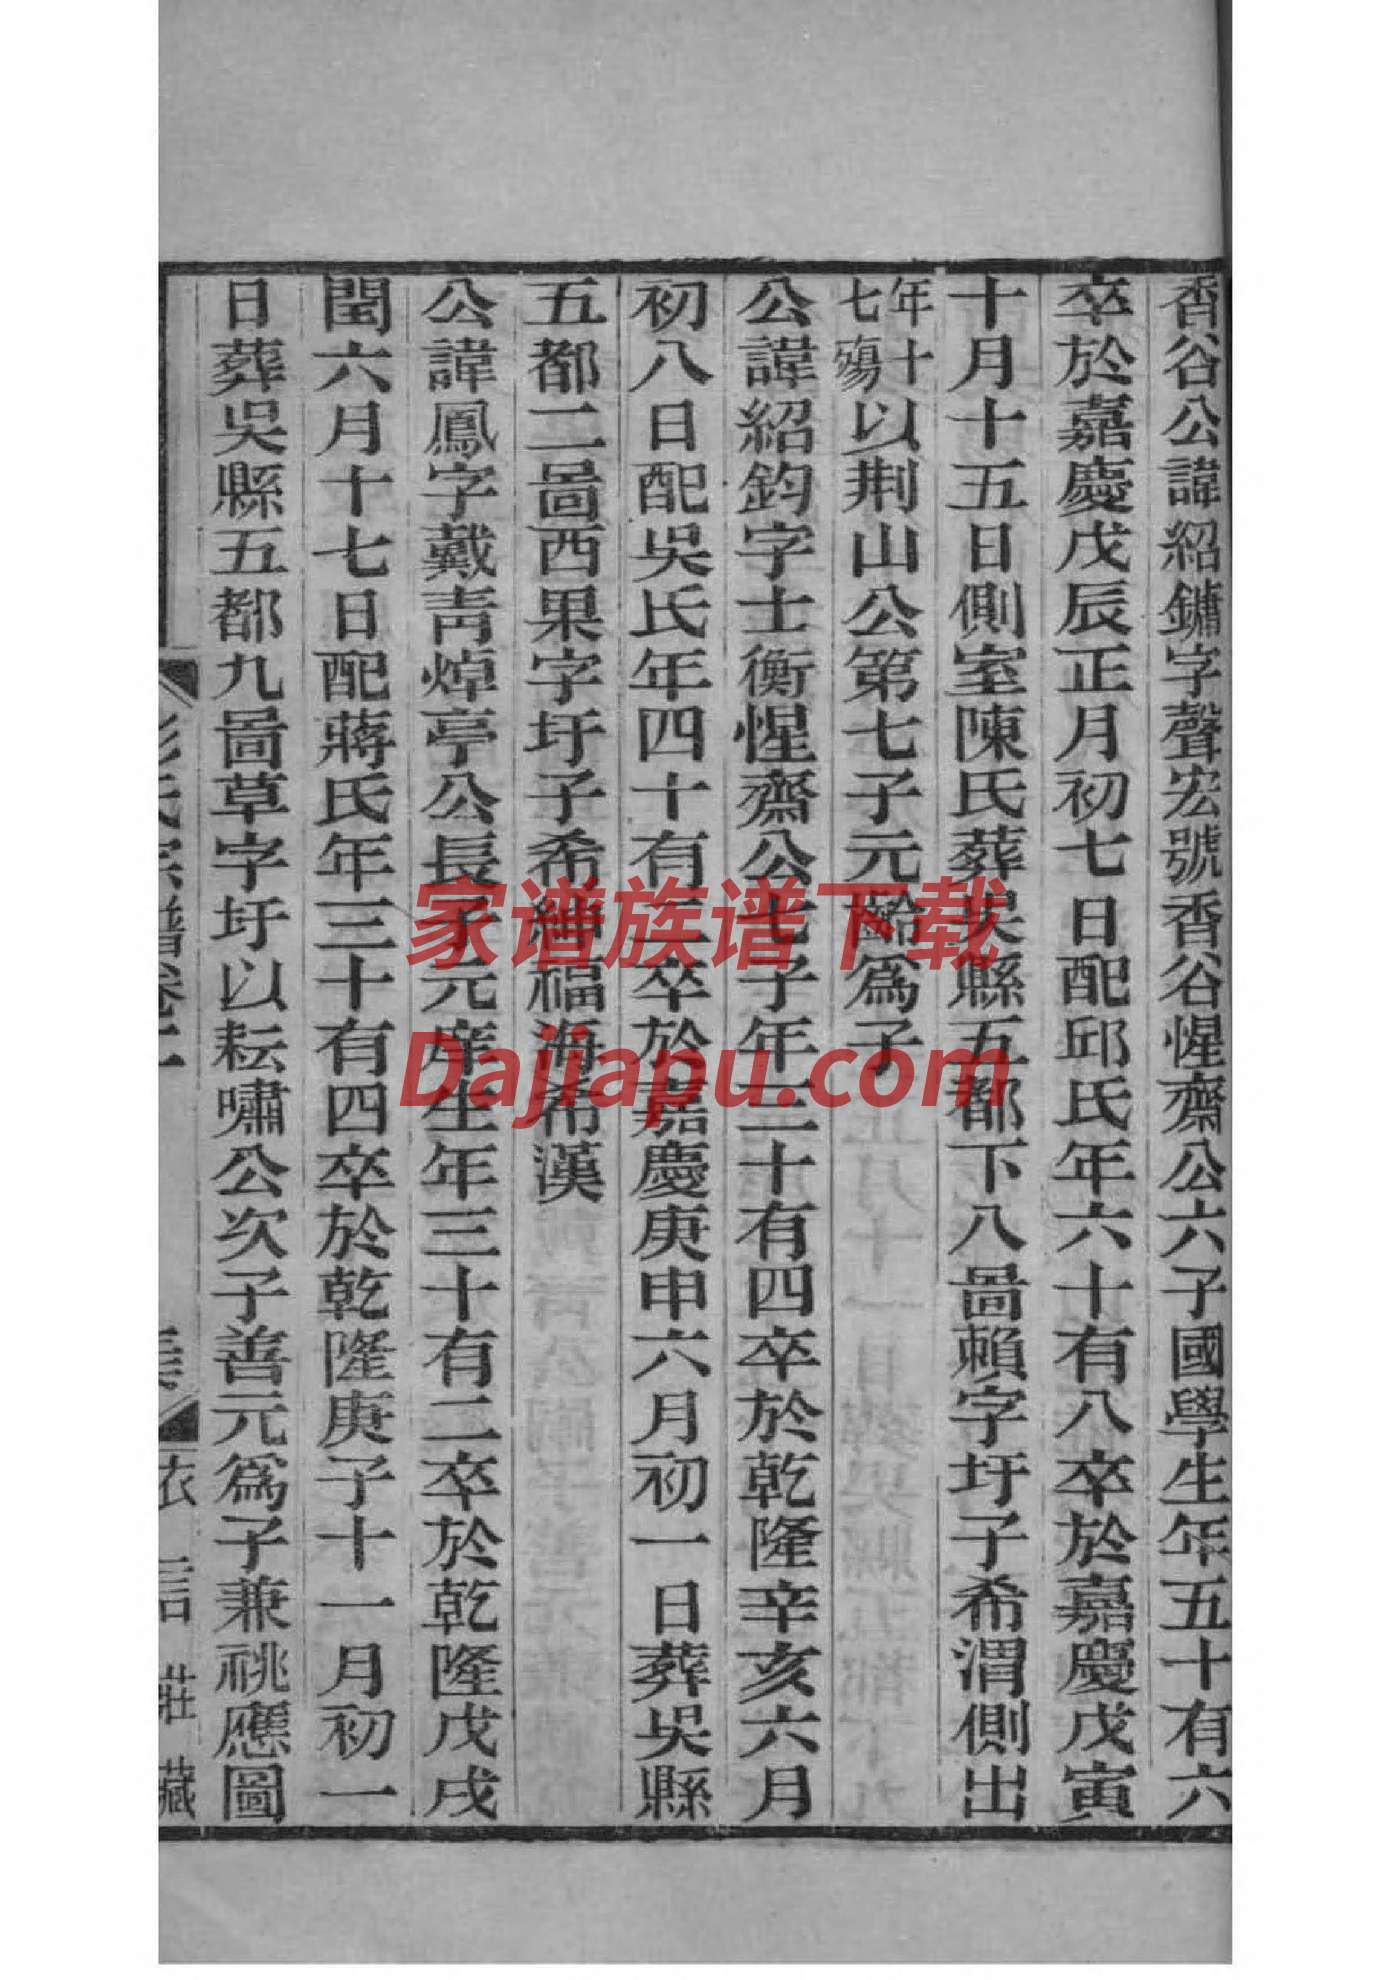 香谷公諱紹鏞字聲宏號香谷惺齋公六子國學生年五十有六
卒於嘉慶戊辰正月初七日配邱氏年六十有八卒於嘉慶戊寅
十月十五日側室陳氏葬吳縣五都下八啚賴字圩子希渭側出
年十
七殤以荆山公第七子元齡爲子
公諱紹鈞字士衡惺齋公七子年三十有四卒於乾隆辛亥六月
初八日配吳氏年四十有二卒於嘉慶庚申六月初一日葬吳縣
五都二啚西果字圩子希紳福海希漢
公諱鳳字戴靑焯亭公長子元庠生年三十有二卒於乾隆戊戌
閏六月十七日配蔣氏年三十有四卒於乾隆庚子十一月初一
日葬吳縣五都九啚草字圩以耘嘯公次子善元爲子兼祧應圖
彭氏宗譜卷二
衣言莊藏
家谱族谱下载
Dajiapu.com